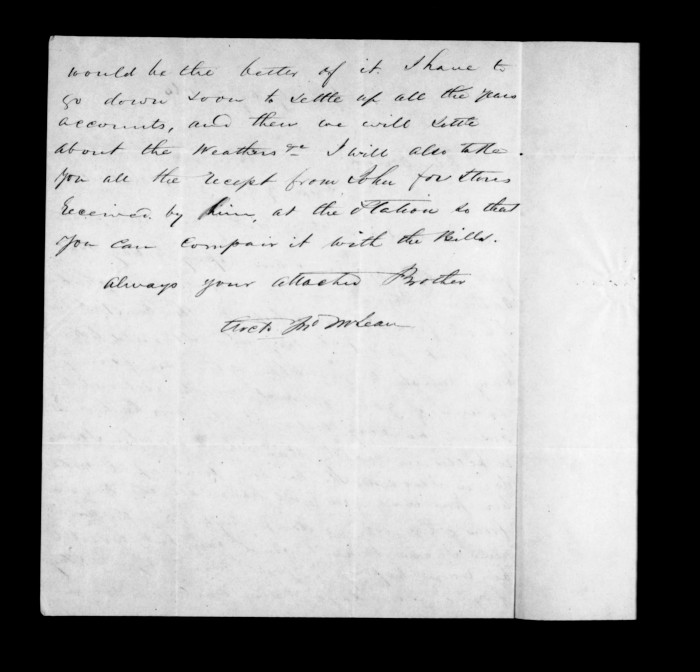 would be the better of it. I have to
go down soon to settle up all the years
accounts, and then we will settle
about the Weathers &c I will also take
you all the recept from John for Stores
Received. by him, at the Station so that
you can compair it with the Bills.
always your attached Brother
Archd Jno McLean